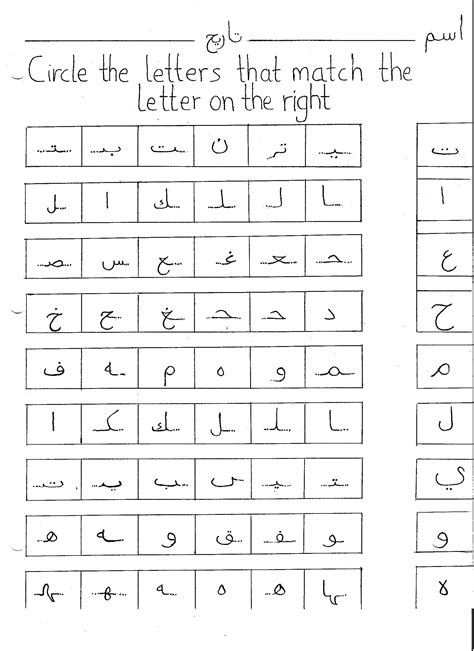 اسم تاريخ
Circle the letters that match the
letter on the right
ت يـ تر ن ـت بـ ـتـ
ا ـا لـ ـلـ ـك ا ـل
ع حـ ـعـ غـ ـع ـس ـصـ
ح د حـ ـحـ ـغ ح خ
م ـمـ و ه م ـه ف
ل ـا ـلـ ـل ـك كـ ا
ي ـتـ ـيـ ـب يـ ـت
و ـو ـفـ ـق و ـه هـ
ه هـ ه ـه ـهـ